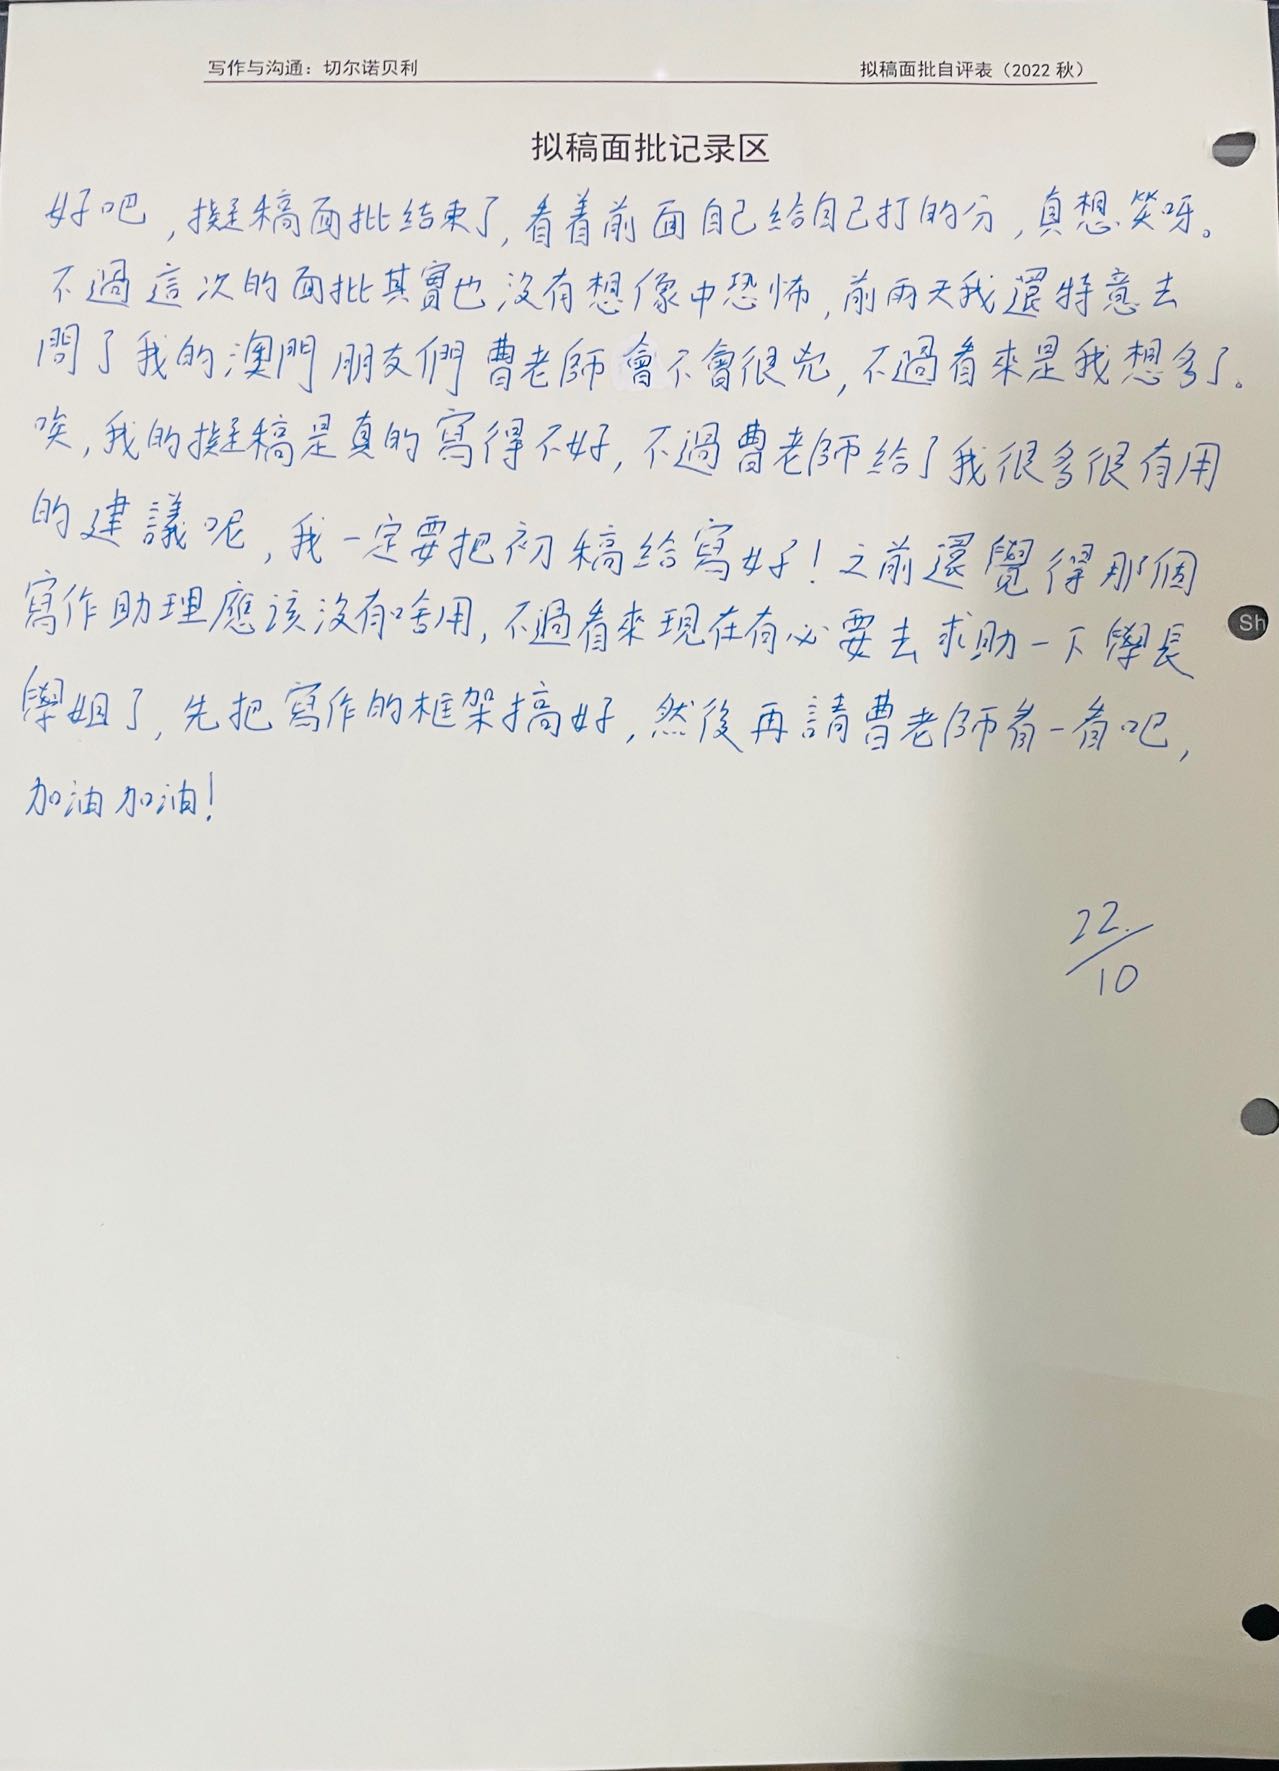 写作与沟通：切尔诺贝利
拟稿面批自评表（2022 秋）
拟稿面批记录区
好吧，擬稿面批結束了，看着前面自己給自己打的分，真想笑呀。
不過這次的面批其實也沒有想像中恐怖，前兩天我還特意去
問了我的澳門朋友們曹老師會不會很兇，不過看來是我想多了。
唉，我的擬稿是真的寫得不好，不過曹老師給了我很多很有用
的建議呢，我一定要把初稿給寫好！之前還覺得那個
寫作助理應該沒有啥用，不過看來現在有必要去求助一下學長
學姐了，先把寫作的框架搞好，然後再請曹老師看一看吧，
加油加油！
22/10
Sh